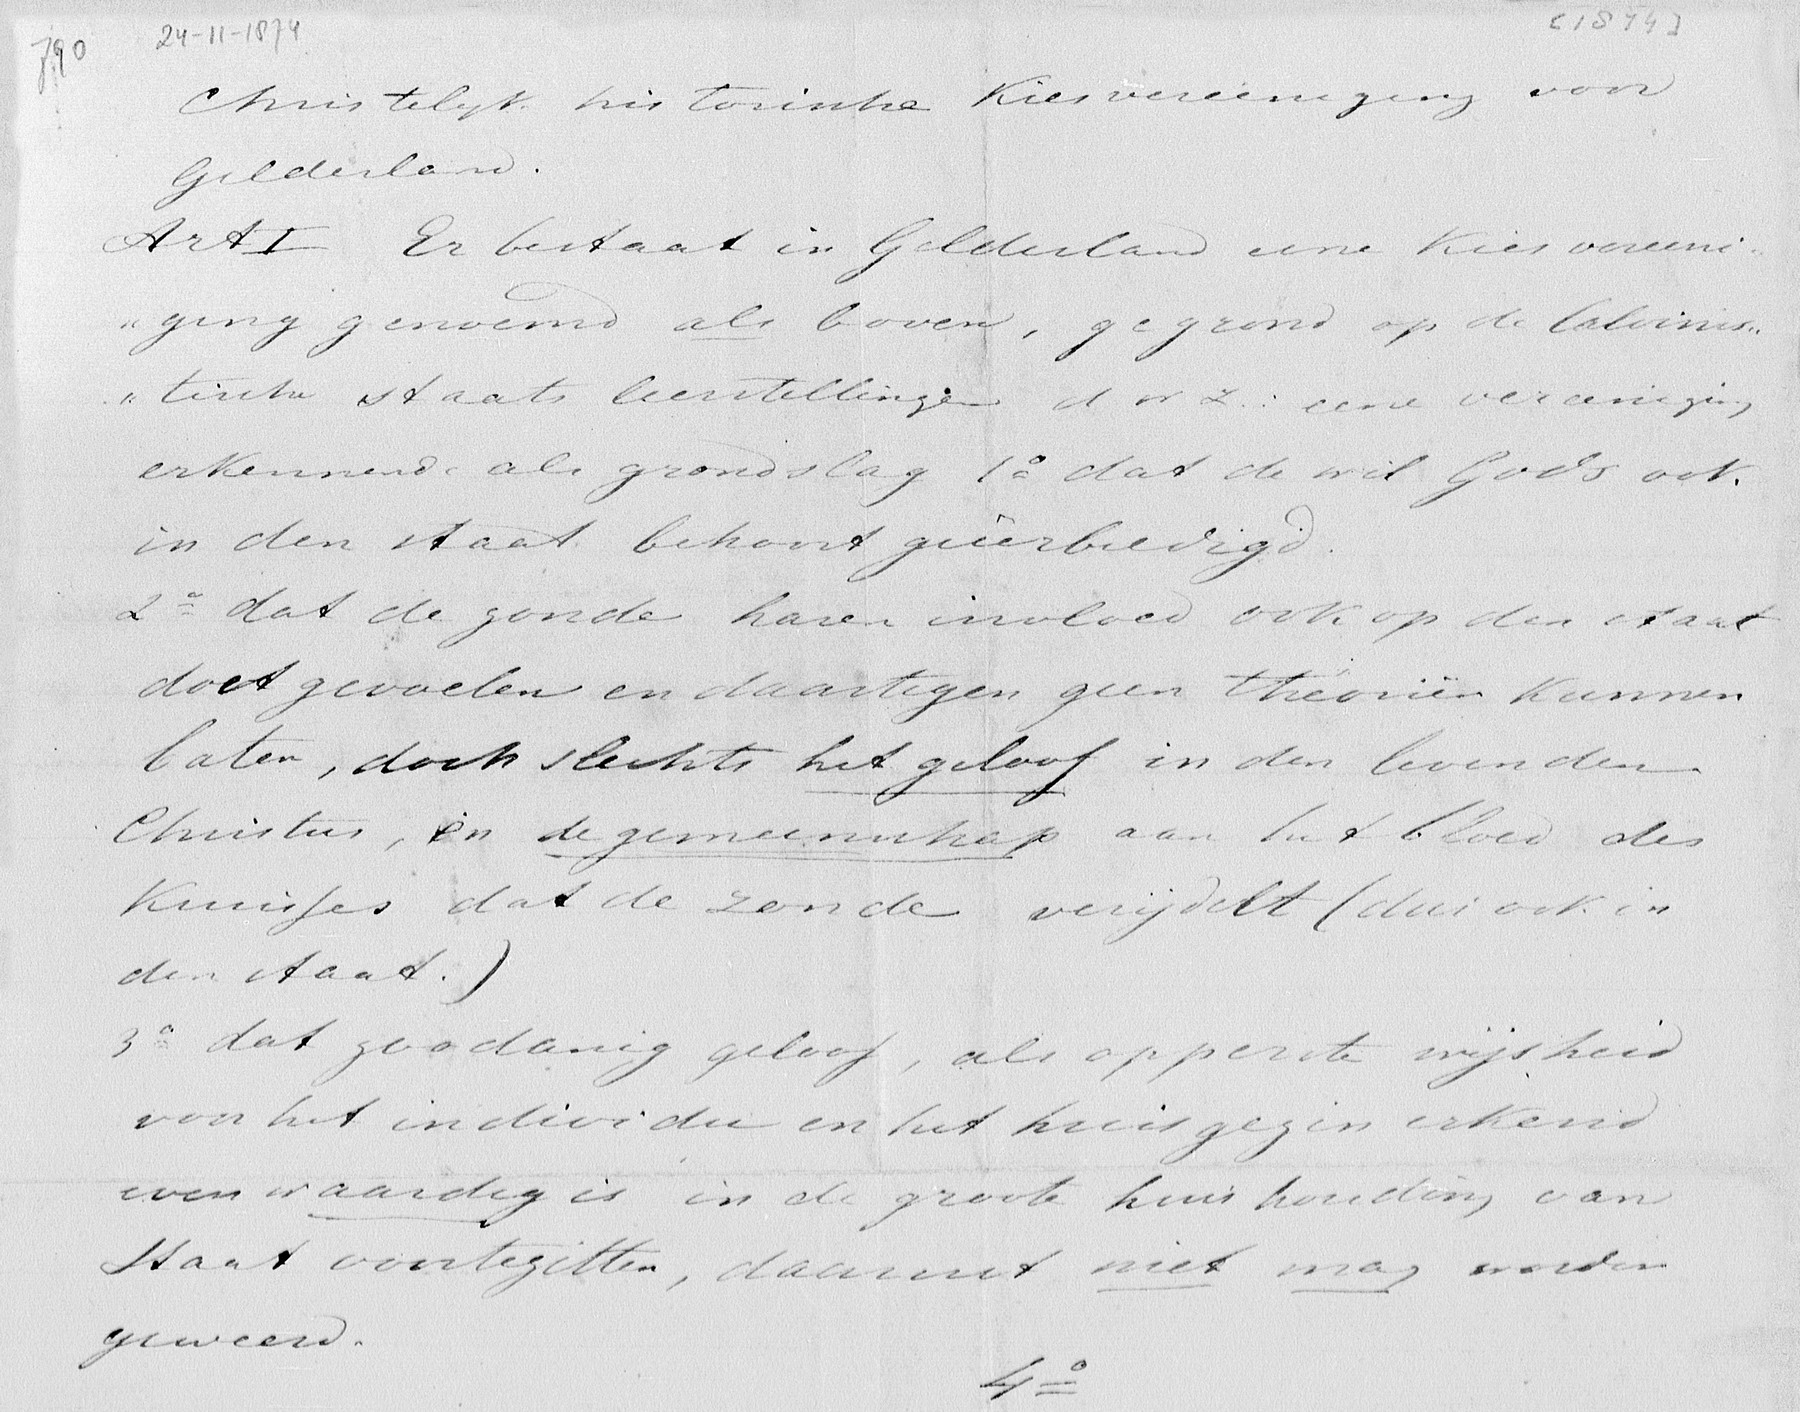 790 24-11-1874 [1874]
Christelijk historische Kiesvereeniging voor
Gelderland.
Art I Er bestaat in Gelderland eene Kiesvereeni-
"ging genoemd als boven, gegrond op de Calvinis"
"tische staats leerstellingen d w z.: eene vereeniging
erkennende als grondslag 1º dat de wil Gods ook
in den staat behoort geëerbiedigd.
2º dat de zonde haren invloed ook op den staat
doet gevoelen en daartegen geen theoriën kunnen
baten, doch slechts het geloof in den levenden
Christus, en de gemeenschap aan het bloed des
Kruisses dat de zonde verijdelt (dus ook in
den staat.)
3º dat zoodanig geloof, als opperste wijsheid
voor het individu en het huisgezin erkend
evenwaardig is in de groote huishouding van
Staat voortezitten, daaruit niet mag worden
geweerd.
4º